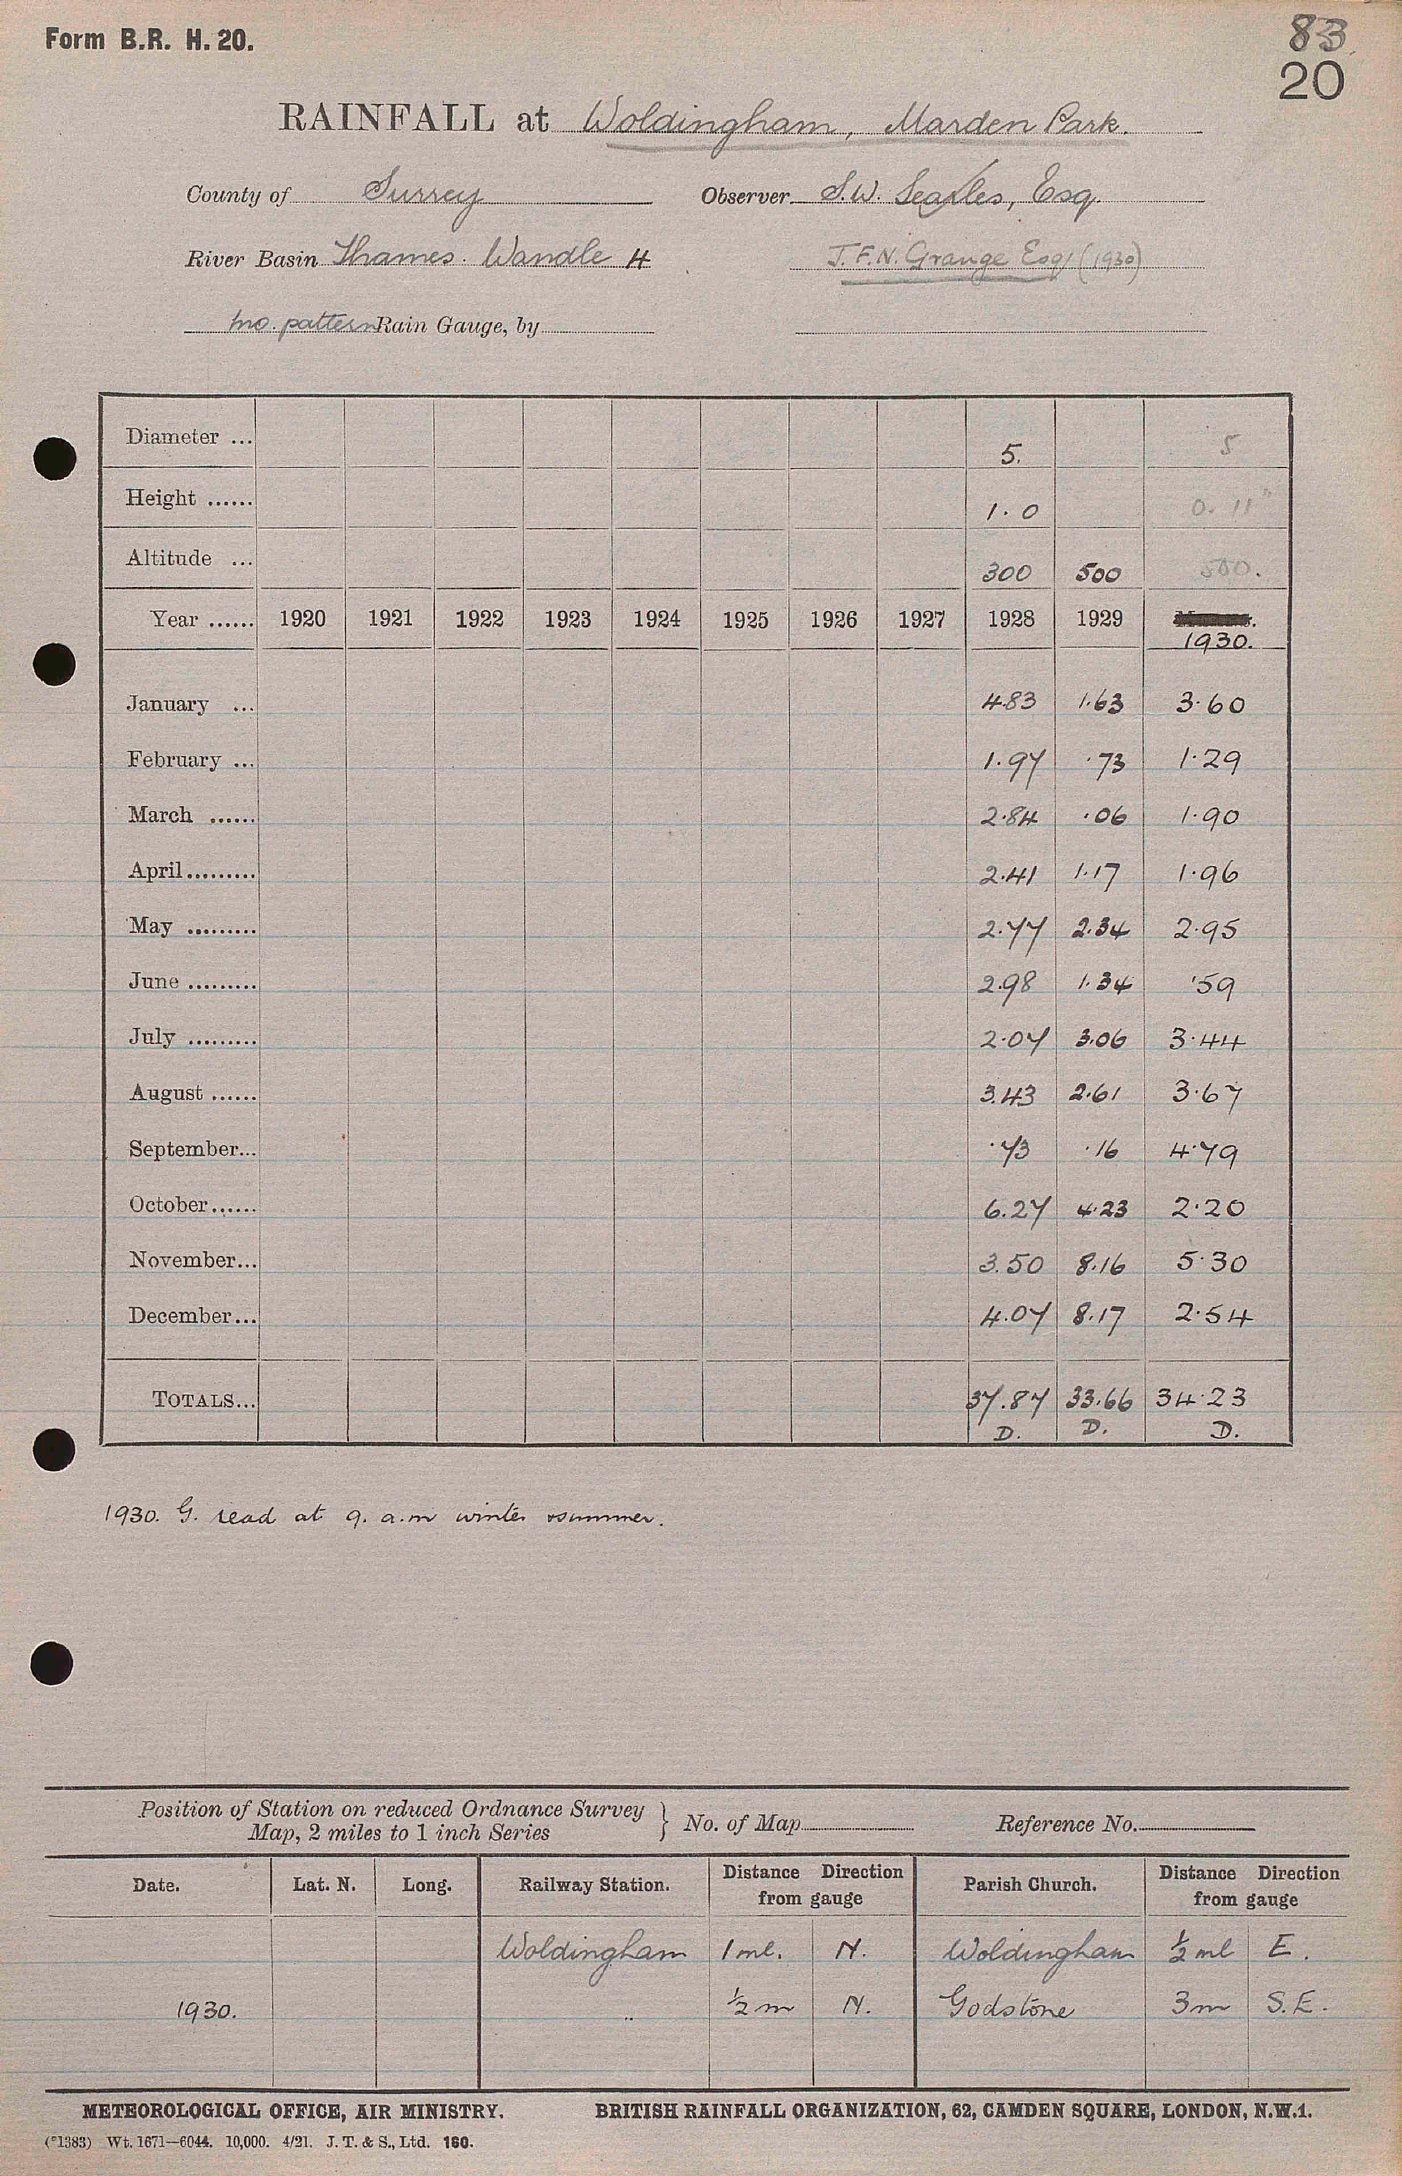 Form B.R. H. 20.
83
20
RAINFALL at Woldingham, Marden Park.
County of Surrey Observer S.W. Searles, Esq.
River Basin Thames. Wandle 4 J.F.N. Grange Esq. (1930)
mo. pattern Rain Gauge, by
Diameter ... 5. 5
Height ...... 1.0 0. 11"
Altitude ... 300 500 500.
Year ...... 1920 1921 1922 1923 1924 1925 1926 1927 1928 1929 1930.
January ... 4.83 1.63 3.60
February ... 1.97 .73 1.29
March ...... 2.84 .06 1.90
April ......... 2.41 1.17 1.96
May ......... 2.77 2.34 2.95
June ......... 2.98 1.34 .59
July ......... 2.07 3.06 3.44
August ...... 3.43 2.61 3.67
September... .73 .16 4.79
October...... 6.27 4.23 2.20
November... 3.50 8.16 5.30
December... 4.07 8.17 2.54
TOTALS... 37.87 33.66 34.23
D. D. D.
1930. G. read at 9. a.m winter & summer.
Position of Station on reduced Ordnance Survey
Map, 2 miles to 1 inch Series } No. of Map Reference No.
Date. Lat. N. Long. Railway Station. Distance Direction from gauge Parish Church. Distance Direction from gauge
Woldingham 1 ml. N. Woldingham ½ ml E.
1930. " ½ m N. Godstone 3m S.E.
METEOROLOGICAL OFFICE, AIR MINISTRY. BRITISH RAINFALL ORGANIZATION, 62, CAMDEN SQUARE, LONDON, N.W.1.
(*1383) Wt. 1671—6044. 10,000. 4/21. J. T. & S., Ltd. 160.